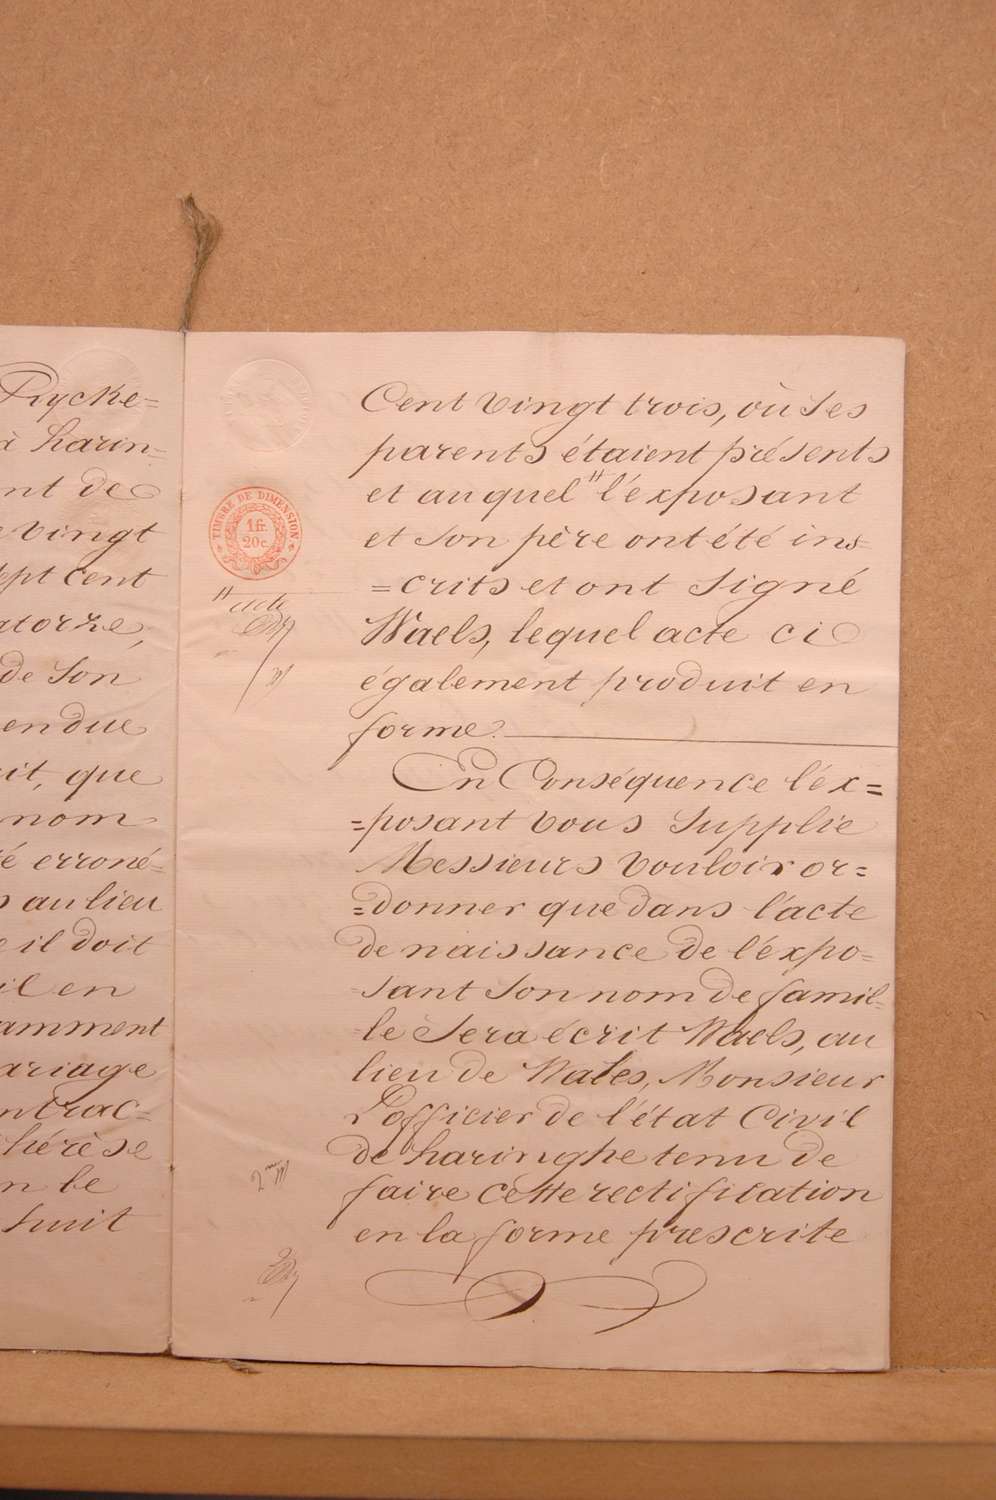 Rycke=
à harin=
nt de
vingt
sept cent
atorze,
de Son
endue
it, que
nom
é erroné=
au lieu
il doit
il en
amment
ariage
ntrac=
hérèse
n le
huit
TIMBRE DE DIMENSION
1 fr.
20 c.
" acte
2me
Cent vingt trois, où Ses
parents étaient présents
et au quel " l'exposant
et Son père ont été ins=
=crits et ont Signé
Waels, lequel acte ci
également produit en
forme.
En Conséquence l'ex=
=posant vous Supplie
Messieurs vouloir or=
=donner que dans l'acte
de naissance de l'expo=
sant Son nom de famil=
le Sera écrit Waels, au
lieu de Wales, Monsieur
L'officier de l'état Civil
de haringhe tenu de
faire cette rectification
en la forme prescrite